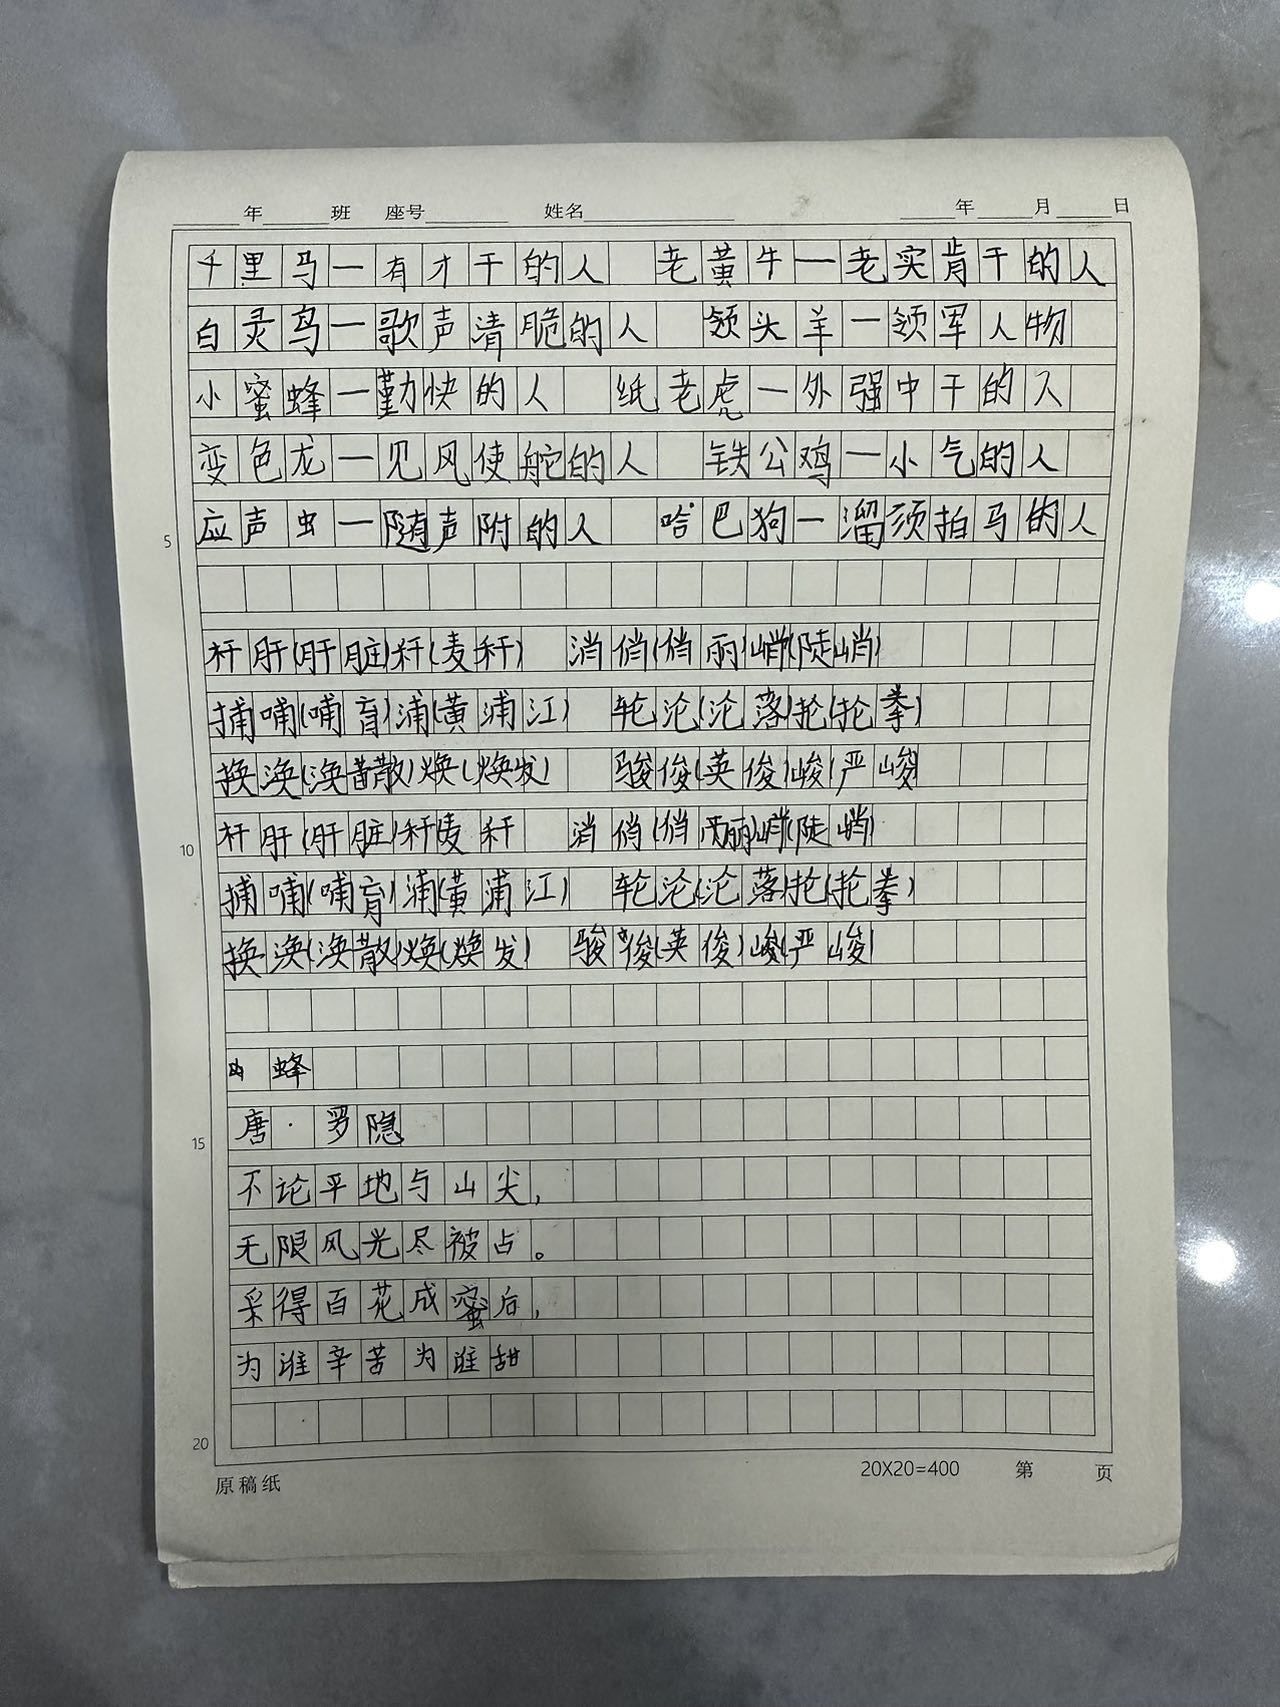 ____年____班 座号____ 姓名____ ____年____月____日
千里马一有才干的人 老黄牛一老实肯干的人
白灵鸟一歌声清脆的人 领头羊一领军人物
小蜜蜂一勤快的人 纸老虎一外强中干的人
变色龙一见风使舵的人 铁公鸡一小气的人
5 应声虫一随声附的人 哈巴狗一溜须拍马的人
杆肝(肝脏)秆(麦秆) 消俏(俏丽)峭(陡峭)
捕哺(哺育)浦(黄浦江) 轮沦(沦落)抡(抡拳)
换涣(涣散)焕(焕发) 骏俊(英俊)峻(严峻
10 杆肝(肝脏)秆(麦秆 消俏(俏丽)峭(陡峭)
捕哺(哺育)浦(黄浦江) 轮沦(沦落)抡(抡拳)
换涣(涣散)焕(焕发) 骏俊(英俊)峻(严峻)
蜂
15 唐·罗隐
不论平地与山尖,
无限风光尽被占。
采得百花成蜜后,
为谁辛苦为谁甜
20
原稿纸 20X20=400 第 页